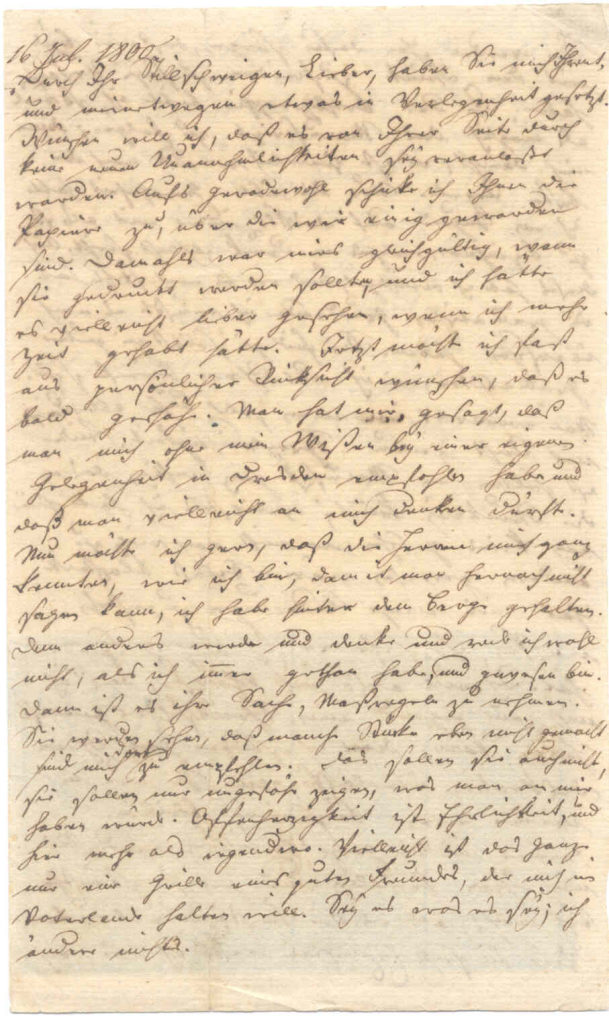 16 Jul. 1800
Durch Ihr Stillschweigen, Lieber, haben Sie mich Ihrent-
und meinetwegen etwas in Verlegenheit gesetzt.
Wünschen will ich, daß es von Ihrer Seite durch
keine neuen Unannehmlichkeiten sey veranlaßt
worden. Aufs geradewohl schicke ich Ihnen die
Papiere zu, über die wir einig geworden
sind. Damahls war mirs gleichgültig, wenn
sie gedruckt werden sollten, und ich hätte
es vielleicht lieber gesehen, wenn ich mehr
Zeit gehabt hätte. Jetzt möchte ich fast
aus persönlicher Rücksicht wünschen, daß es
bald geschähe. Man hat mir gesagt, daß
man mich ohne mein Wißen bey einer eigenen
Gelegenheit in Dresden empfohlen habe und
daß man vielleicht an mich denken dürfte.
Nun möchte ich gern, daß die Herren mich ganz
kennten, wie ich bin, damit man hernach nicht
sagen kann, ich habe hinter dem Berge gehalten.
Denn anders werde und denke und rede ich wohl
nicht, als ich immer gethan habe, und gewesen bin.
Dann ist es ihre Sache, Maßregeln zu nehmen.
Sie werden sehen, daß manche Stücke eben nicht gemacht
sind mich zu empfehlen. Das sollen sie auch nicht,
sie sollen nur ungefähr zeigen, was man an mir
haben würde. Offenherzigkeit ist Ehrlichkeit, und
hier mehr als irgendwo. Vielleicht ist das Ganze
nur eine Grille eines guten Freundes, der mich im
Vaterlande halten will. Sey es was es sey; ich
ändere nichts.